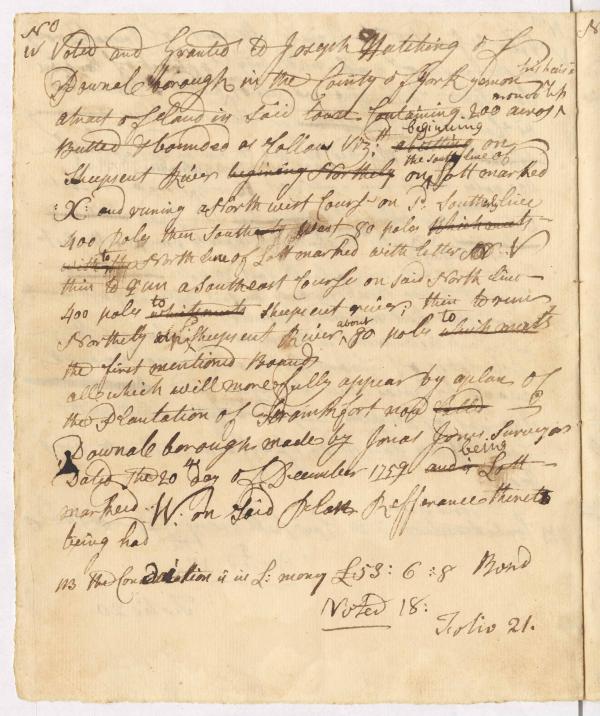 No
W Voted and Granted to Joseph Hutching of
Pownalborough in the County of York yemon his heirs &
a tract of Land in said town Containing 200 acres more or less
Butted & bounded as follows Viz: beginning abutting on
Sheepscut River begining Northely on the South line of Lott marked
:X: and runing a North west Course on sd. South Line
400 poles then Southerly West 80 poles which meets
with the to North Line of Lott marked with letter V
then to run a Southeast Course on said North Line
400 poles to which meets Sheepscut river; then to run
Northely up sd. Sheepscut River about 80 poles to which meets
the first mentioned Bounds
all which will more fully appear by a plan of
the Plantation of Frankfort now
Pownalborough made by Jonas Jones Surveyor
Dated the 20th Day of December 1759 and is being Lott
marked :W: on said Plan Refferance thereto
being had
NB the Consideration is in L: money £53:6:8 Bond
Voted 18:
Folio 21.